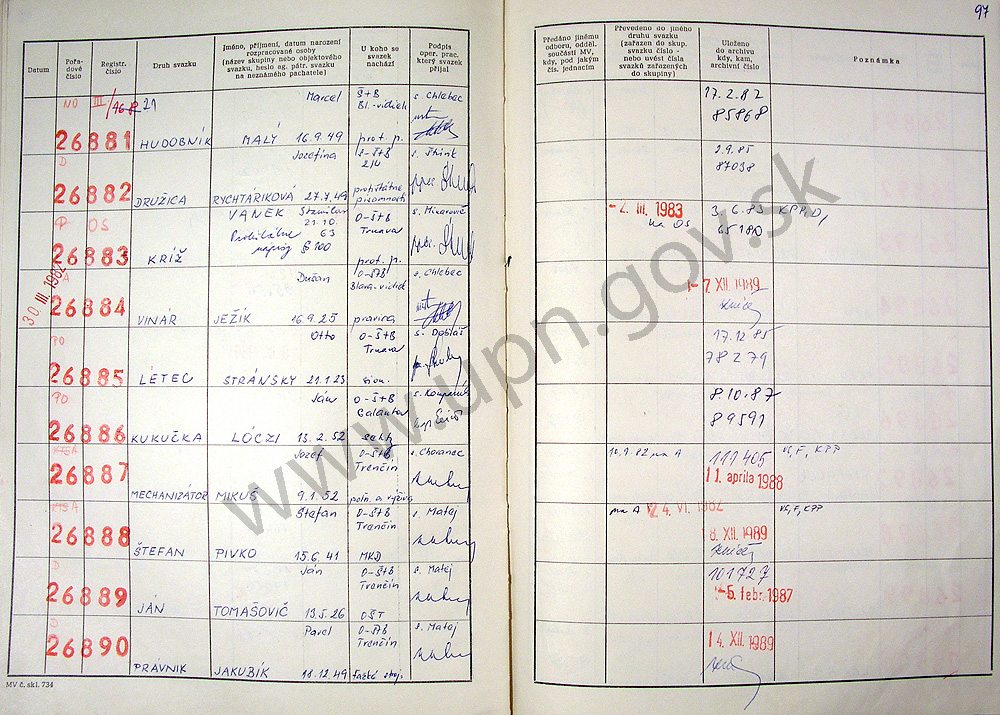 97
Datum
Pořa-
dové
číslo
Registr.
číslo
Druh svazku
Jméno, příjmení, datum narození
rozpracované osoby
(název skupiny nebo objektového
svazku, heslo ag. pátr. svazku
na neznámého pachatele)
U koho se
svazek
nachází
Podpis
oper. prac.
který svazek
přijal
Předáno jinému
odboru, odděl.
součásti MV,
kdy, pod jakým
čís. jednacím
Převedeno do jiného
druhu svazku
(zařazen do skup.
svazku číslo -
nebo uvést čísla
svazků zařazených
do skupiny)
Uloženo
do archivu
kdy, kam,
archivní číslo
Poznámka
30 III. 1982
26881 HUDOBNÍK MALÝ Marcel 16.9.49 prot. p. s. Chlebec
17.2.82
85868
D
26882 DRUŽICA RYCHTÁRIKOVÁ Jozefína 27.7.49 protištátne
písomnosti
2.9.85
87038
OS
26883 KRÍŽ VANEK Stanislav
21.10.
63
§ 100
O-ŠtB
Trnava
prot. p.
-2. III. 1983
na OS
3.6.83
65180
KPP, D,
26884 VINÁR JEŽÍK Dušan 16.9.25 pravica s. Chlebec
-7 XII. 1989
PO
26885 LETEC STRÁNSKY Otto 21.1.23 O-ŠtB
Trnava
sion.
17.12.85
78279
PO
26886 KUKUČKA LÓCZI Ján 13.2.52 O-ŠtB
Galanta
sekty
8.10.87
89591
26887 MECHANIZÁTOR MIKUŠ Jozef 9.1.52 O-ŠtB
Trenčín
poľn. a výživa
s. Chovanec
10.9.82 na A
111405
11. apríla 1988
VS, F, KPP
26888 ŠTEFAN PIVKO Štefan 15.6.41 O-ŠtB
Trenčín
MKD
s. Matej
na A
18. XII. 1989
VS, F, KPP
D
26889 JÁN TOMAŠOVIČ Ján 13.5.26 O-ŠtB
Trenčín
OŠT
s. Matej
101727
-5. febr. 1987
D
26890 PRÁVNIK JAKUBÍK Pavel 18.12.49 O-ŠtB
Trenčín
ťažké stroj.
s. Matej
14. XII. 1989
MV č. skl. 734
www.upn.gov.sk